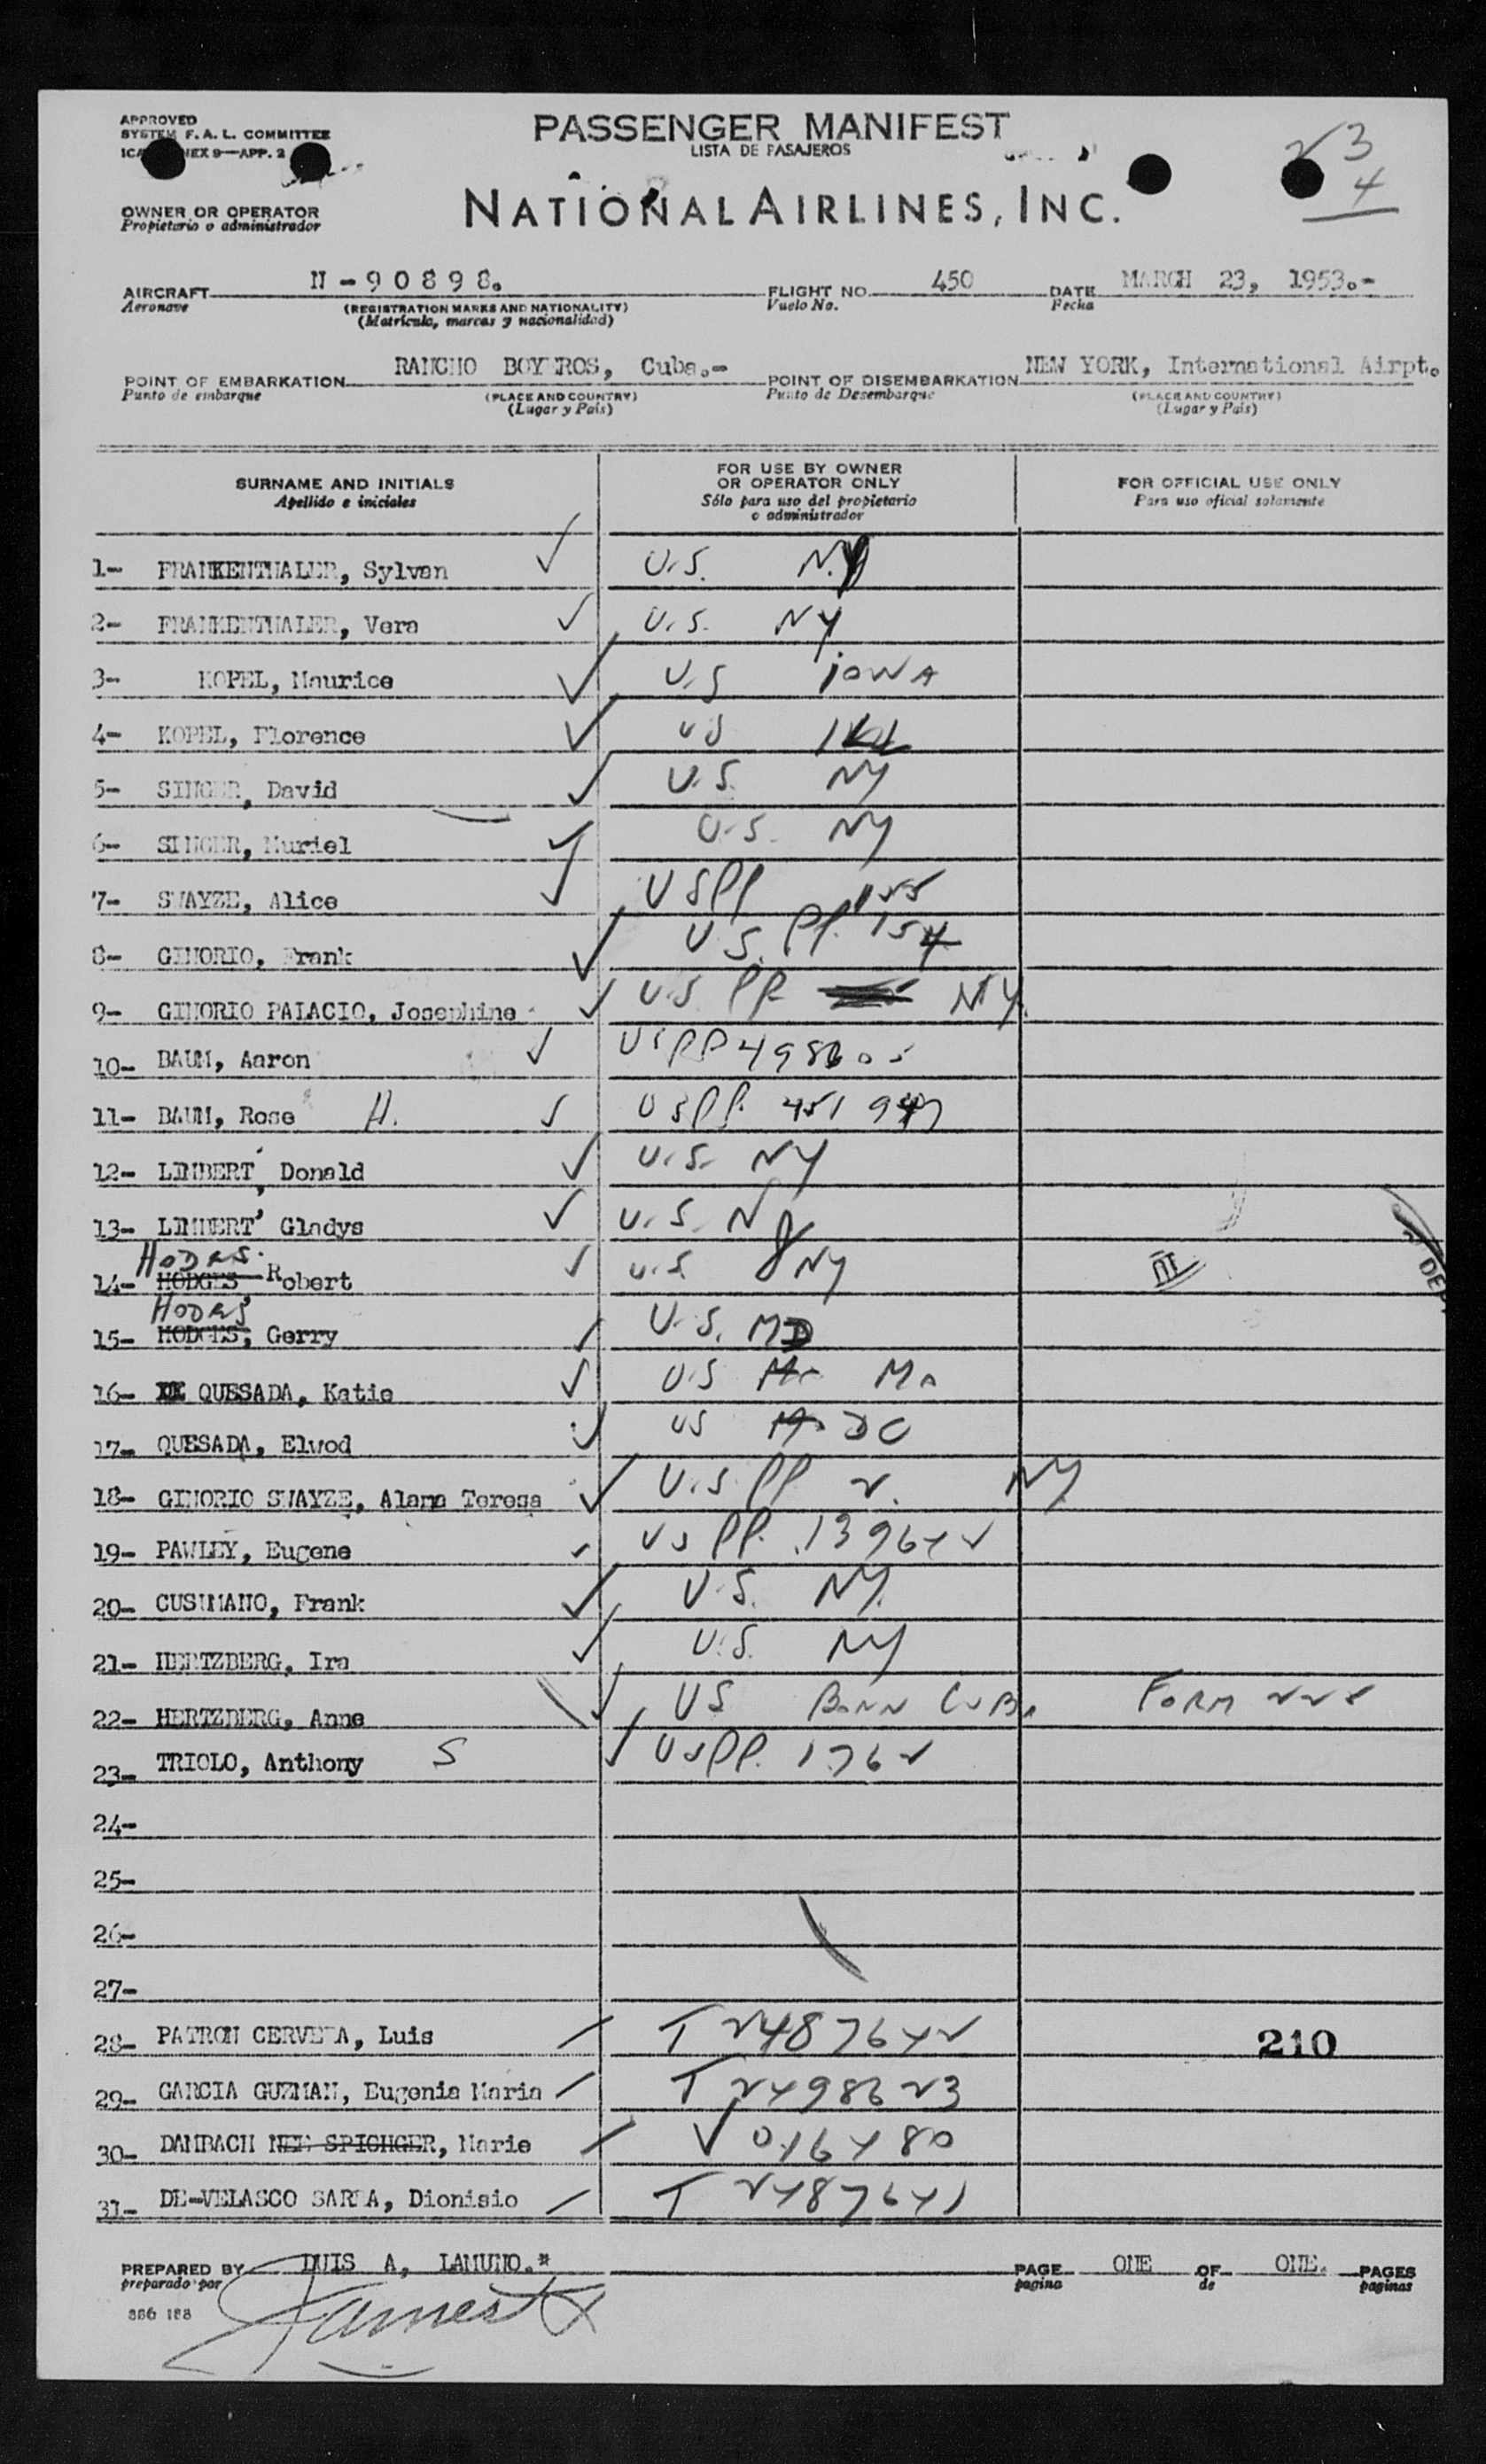 APPROVED
SYSTEM F. A. L. COMMITTEE
9—APP. 2
PASSENGER MANIFEST
LISTA DE PASAJEROS
23
4
OWNER OR OPERATOR
Propietario o administrador
NATIONAL AIRLINES, INC.
AIRCRAFT N-90898.
Aeronave
(REGISTRATION MARKS AND NATIONALITY)
(Matrícula, marcas y nacionalidad)
FLIGHT NO. 450
Vuelo No.
DATE MARCH 23, 1953.-
Fecha
POINT OF EMBARKATION RANCHO BOYEROS, Cuba.-
Punto de embarque
(PLACE AND COUNTRY)
(Lugar y País)
POINT OF DISEMBARKATION NEW YORK, International Airpt.
Punto de Desembarque
(PLACE AND COUNTRY)
(Lugar y País)
SURNAME AND INITIALS
Apellido e iniciales
FOR USE BY OWNER
OR OPERATOR ONLY
Sólo para uso del propietario
o administrador
FOR OFFICIAL USE ONLY
Para uso oficial solamente
1- FRANKENTHALER, Sylvan U.S. N.Y
2- FRANKENTHALER, Vera U.S. NY
3- KOPEL, Maurice U.S iOWA
4- KOPEL, Florence US
5- SINGER, David U.S. NY
6- SINGER, Muriel U.S. NY
7- SWAYZE, Alice USPP
8- GINORIO, Frank U.S. PP. 154
9- GINORIO PALACIO, Josephine U.S PP NY.
10- BAUM, Aaron USPP
11- BAUM, Rose H. USPP.
12- LIMBERT, Donald U.S. NY
13- LIMBERT, Gladys U.S. NY
HODES.
14- HODGES Robert U.S. NY
III
HODES
15- HODGES, Gerry U.S. MD
16- QUESADA, Katie U.S
17- QUESADA, Elwod US DC
18- GINORIO SWAYZE, Alana Teresa U.S PP 2. NY
19- PAWLEY, Eugene US PP. 139642
20- CUSIMANO, Frank U.S. NY.
21- HERTZBERG, Ira U.S. NY
22- HERTZBERG, Anne US BORN CUBA FORM
23- TRIOLO, Anthony S USPP. 1762
24-
25-
26-
27-
28- PATRON CERVERA, Luis T 2487642
210
29- GARCIA GUZMAN, Eugenia Maria T 2498623
30- DAMBACH NEE SPICHGER, Marie V 016480
31- DE-VELASCO SARRA, Dionisio T 2487641
PREPARED BY LUIS A, LAMUNO.*
preparado por
PAGE ONE OF ONE. PAGES
pagina de paginas